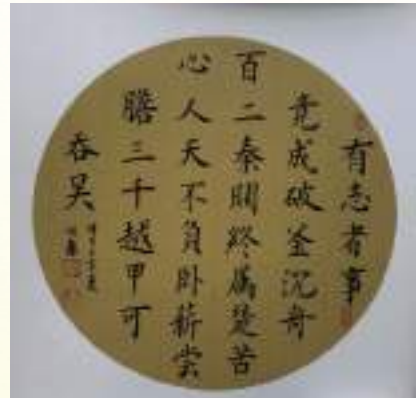 有志者事
竟成破釜沉舟
百二秦関終属楚苦
心人天不負卧薪尝
膽三千越甲可
吞吴